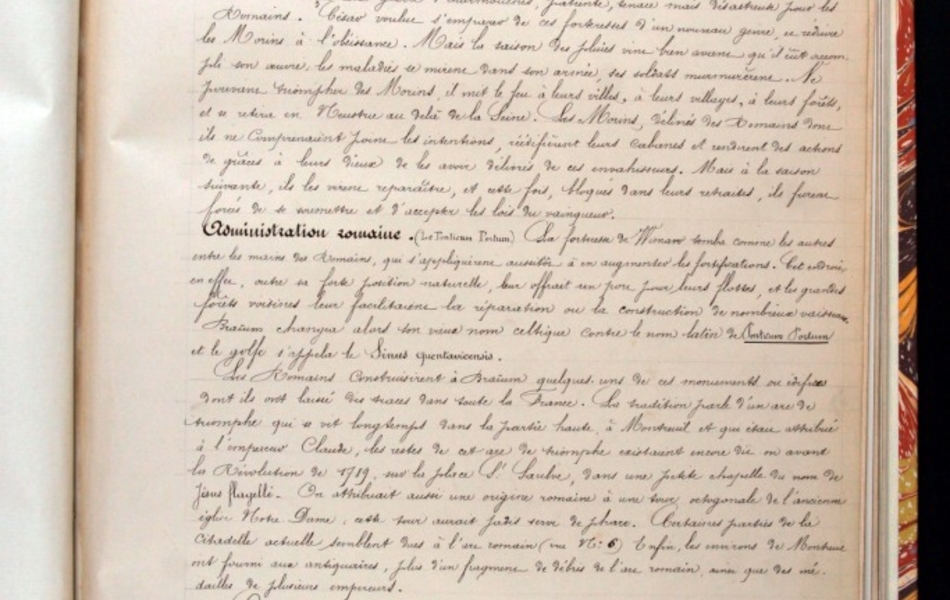 d'escarmouches, patiente, tenace mais désastreuse pour les
Romains. César voulut s'emparer de ces forteresses d'un nouveau genre, et réduire
les Morins à l'obéissance. Mais la saison des pluies vint bien avant qu'il eût accom-
pli son œuvre, les maladies se mirent dans son armée, ses soldats murmurèrent. Ne
pouvant triompher des Morins, il met le feu à leurs villes, à leurs villages, à leurs forêts,
et se retira en Neustrie au delà de la Seine. Les Morins, délivrés des Romains dont
ils ne comprenaient point les intentions, réédifièrent leurs cabanes et rendirent des actions
de grâces à leurs dieux de les avoir délivrés de ces envahisseurs. Mais à la saison
suivante, ils les virent reparaître, et cette fois, bloqués dans leurs retraites, ils furent
forcés de se soumettre et d'accepter les lois du vainqueur.
Administration romaine. (Le Ponticum Portum) La forteresse de Wimaw tomba comme les autres
entre les mains des Romains, qui s'appliquèrent aussitôt à en augmenter les fortifications. Cet endroit
en effet, outre sa forte position naturelle, leur offrait un port pour leurs flottes, et les grandes
forêts voisines leur facilitaient la réparation ou la construction de nombreux vaisseaux.
Braïum changea alors son vieux nom celtique contre le nom latin de Ponticum Portum
et le golfe s'appela le Sinus quentavicensis.
Les Romains construisirent à Braïum quelques-uns de ces monuments ou édifices
dont ils ont laissé des traces dans toute la France. La tradition parle d'un arc de
triomphe qui se vit longtemps dans la partie haute, à Montreuil et qui était attribué
à l'empereur Claude, les restes de cet arc de triomphe existaient encore dit-on avant
la Révolution de 1789, sur la place St. Saulve, dans une petite chapelle du nom de
Jésus flagellé. On attribuait aussi une origine romaine à une tour octogonale de l'ancienne
église Notre Dame, cette tour aurait jadis servi de phare. Certaines parties de la
citadelle actuelle semblent dues à l'art romain (vue No: 6) Enfin, les environs de Montreuil
ont fourni aux antiquaires, plus d'un fragment de débris de l'art romain, ainsi que des mé-
dailles de plusieurs empereurs.